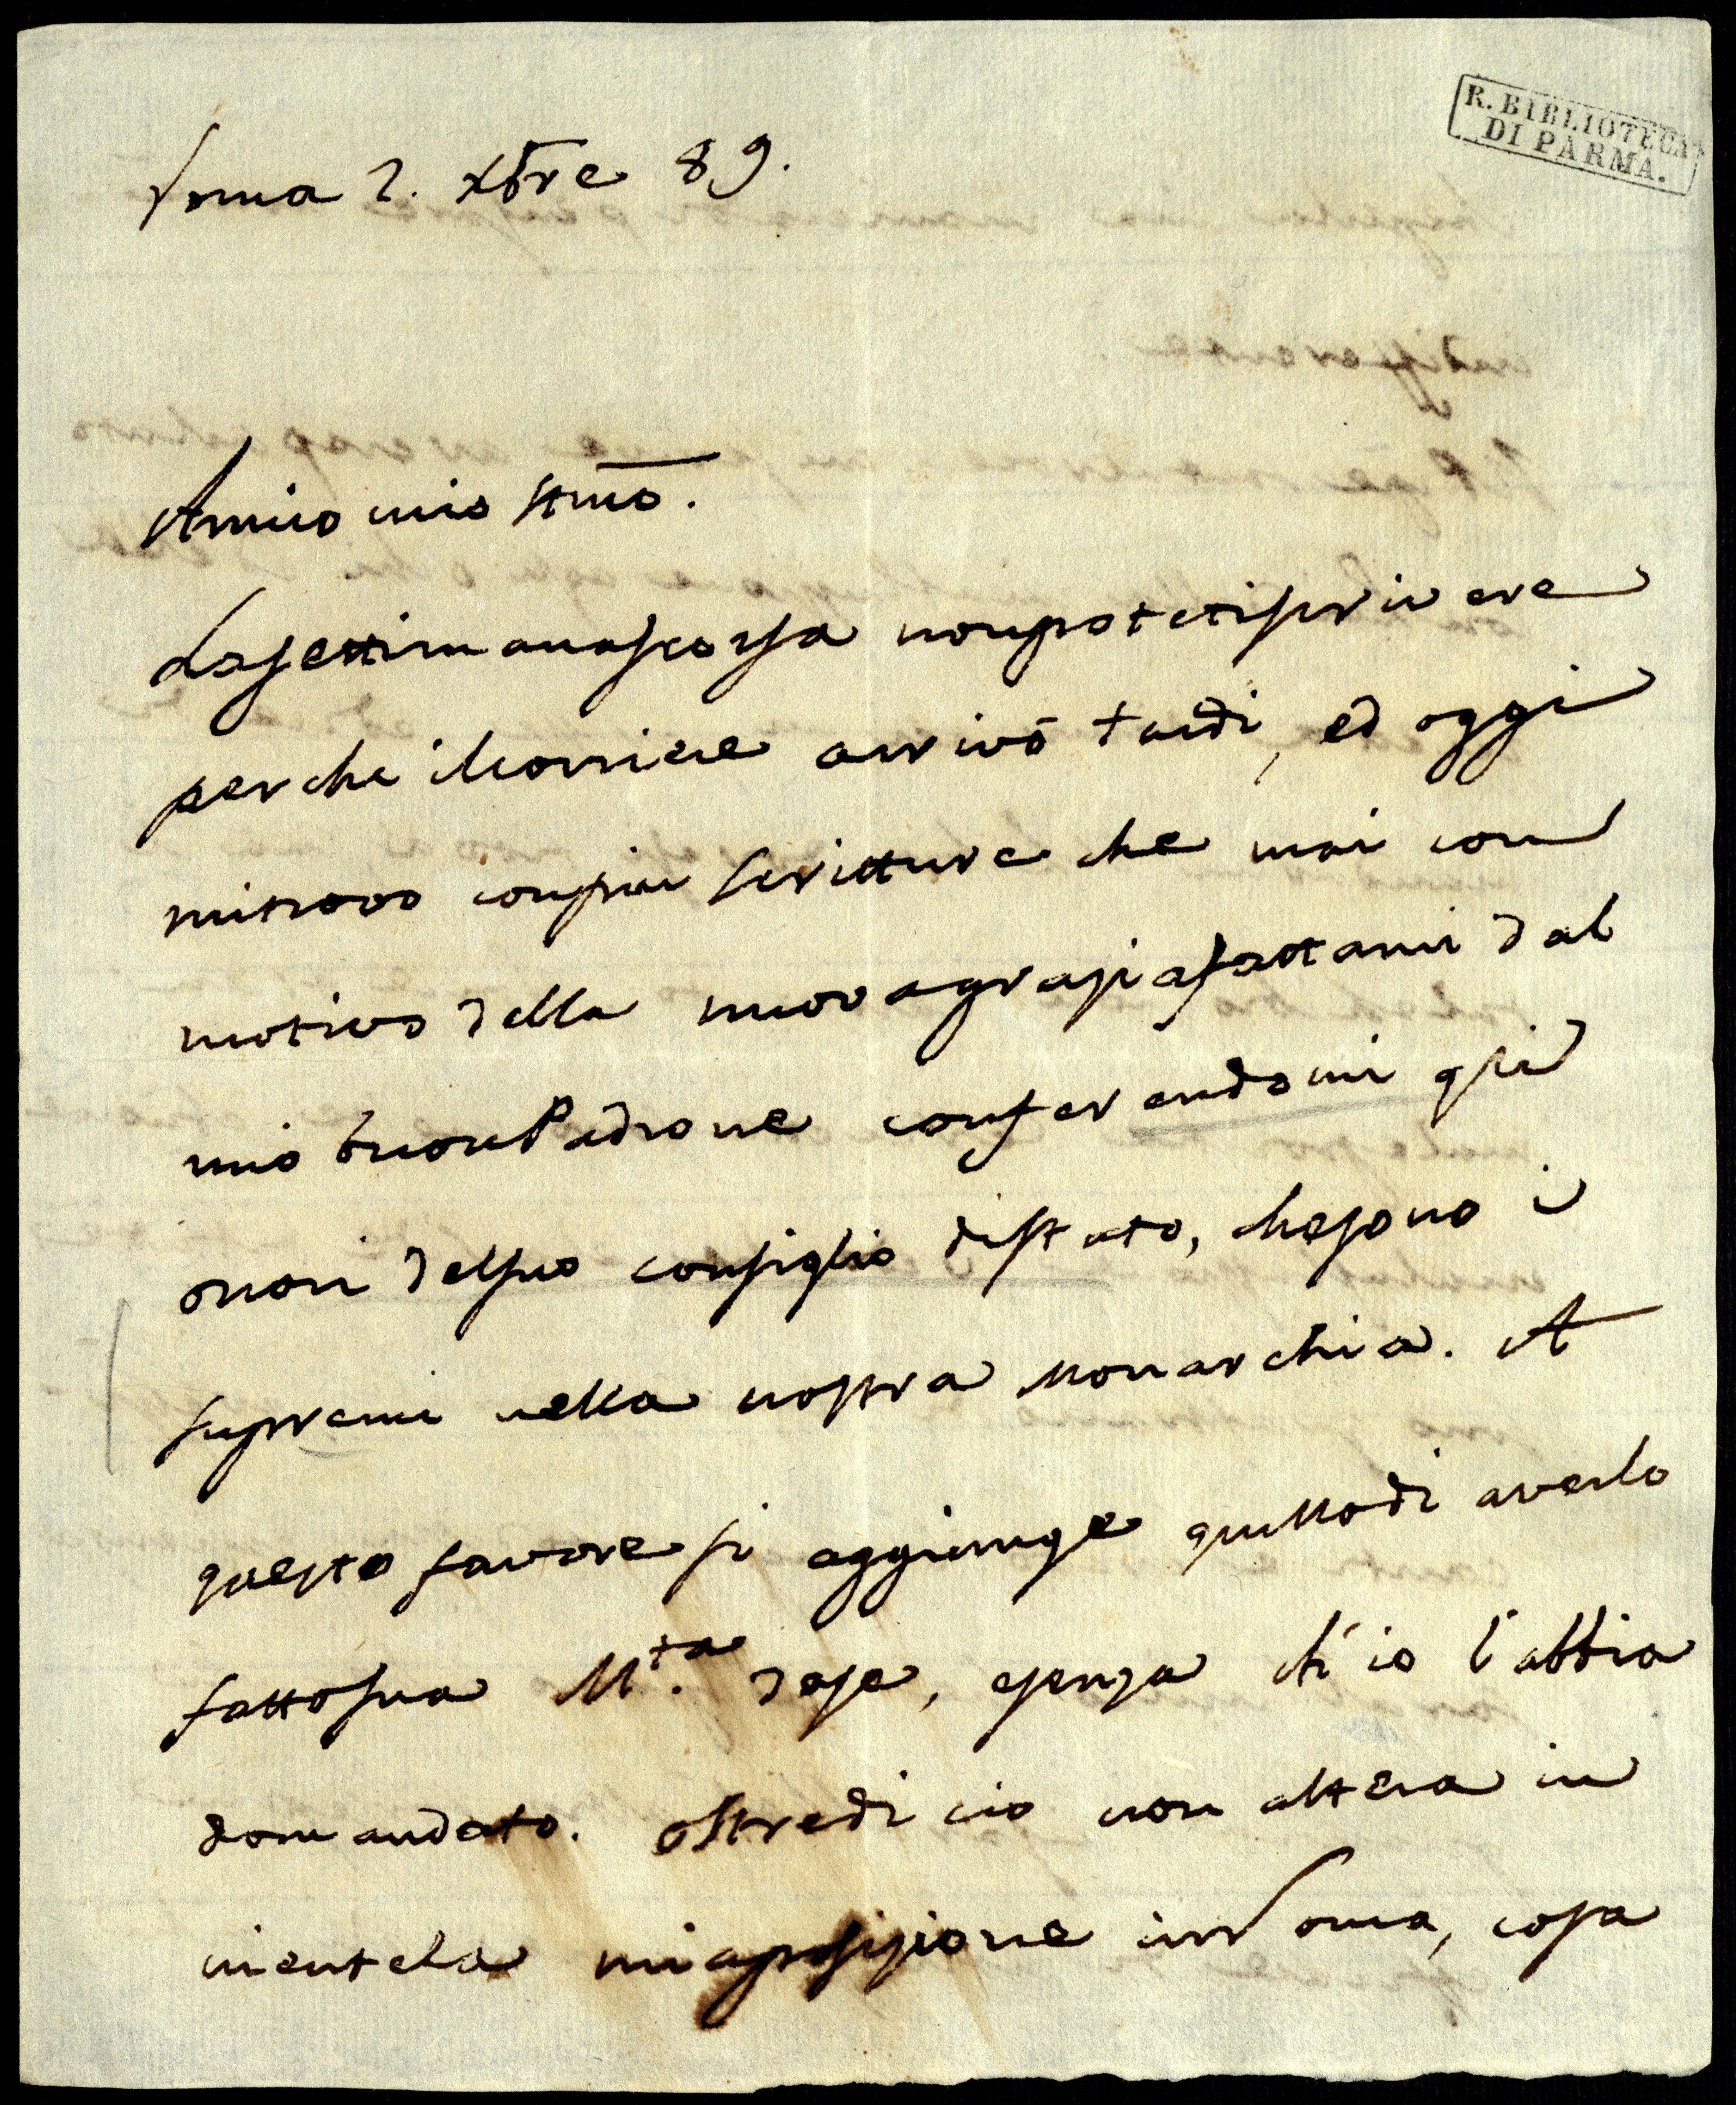 R. BIBLIOTECA
DI PARMA.
Roma 2. Xbre 89.
Amico mio stmo.
La settimana scorsa non potetti scrivere
perche il corriere arrivò tardi, ed oggi
mi trovo con più scritture che mai con
motivo della nuova grazia fattami dal
mio buon Padrone conferendomi gli
onori del suo consiglio di stato, che sono i
supremi nella nostra Monarchia. A
questo favore si aggiunge quello di averlo
fatto sua M.ta da se, e senza ch'io l'abbia
domandato. oltre di cio non altera in
niente la mia posizione in Roma, cosa